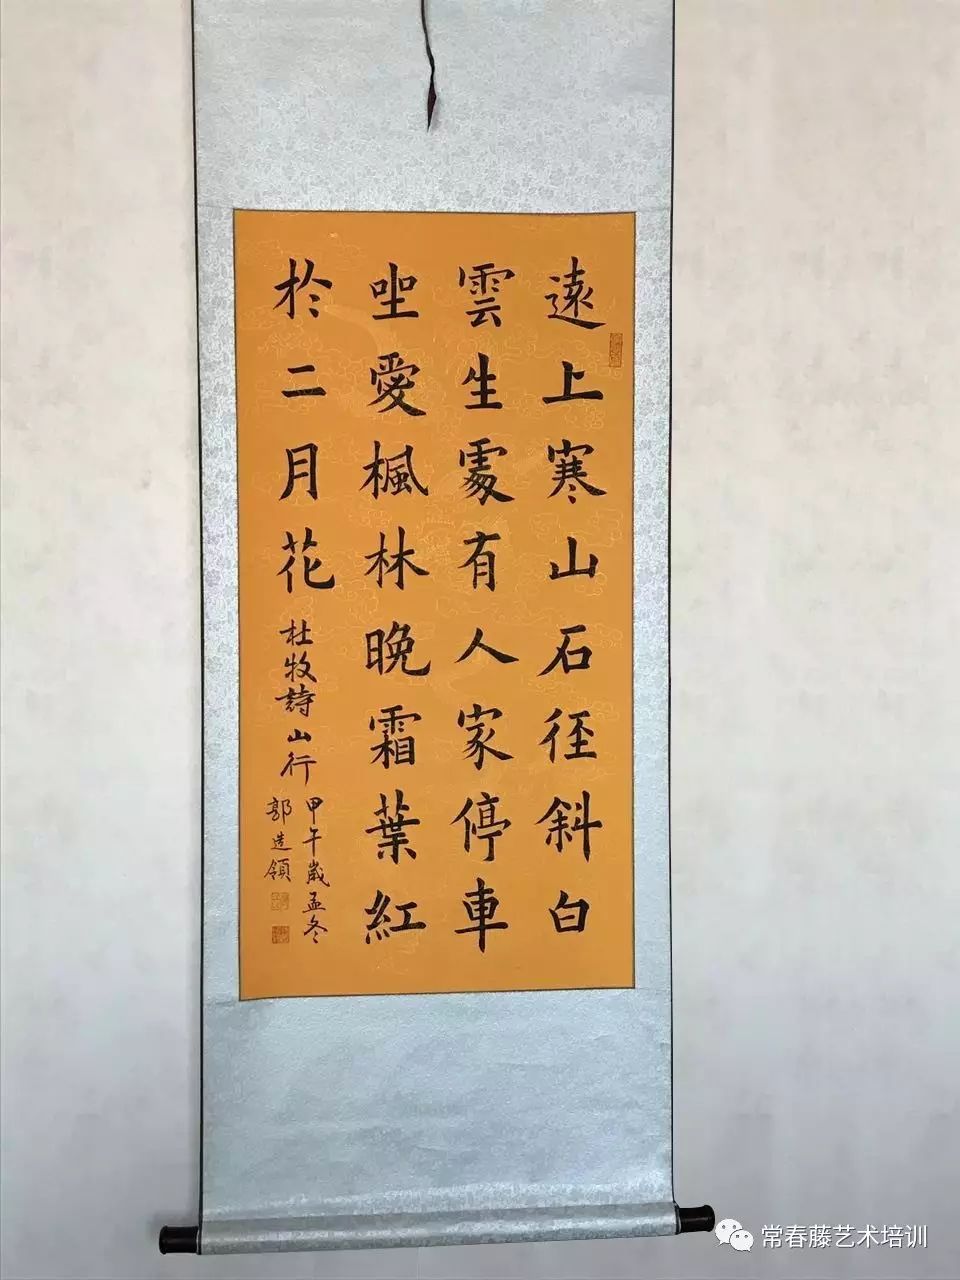 遠上寒山石径斜白
雲生處有人家停車
坐愛楓林晚霜葉紅
於二月花
杜牧詩山行
甲午歲孟冬
郭造領
常春藤艺术培训